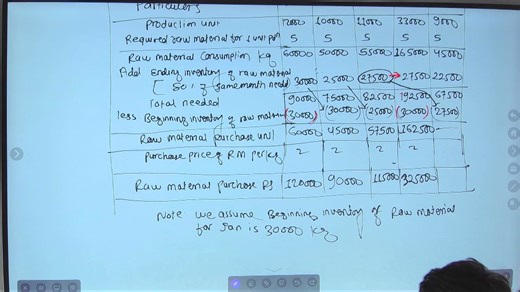 Particulers
Production Unit 12000 10000 11000 33000 9000
Required raw material for 1 unit 5 5 5 5 5
Raw material Consumption kg 60000 50000 55000 165000 45000
Add Ending inventory of raw material 30000 25000 27500 27500 22500
[50% of same month need]
Total needed 90000 75000 82500 192500 67500
less Beginning inventory of raw material (30000) (30000) (25000) (30000) (27500)
Raw material purchase unit 60000 45000 57500 162500
Purchase price of RM per kg 2 2 2 2
Raw material Purchase 120000 90000 115000 325000
Note we assume Beginning inventory of Raw material
for Jan is 30000 kg